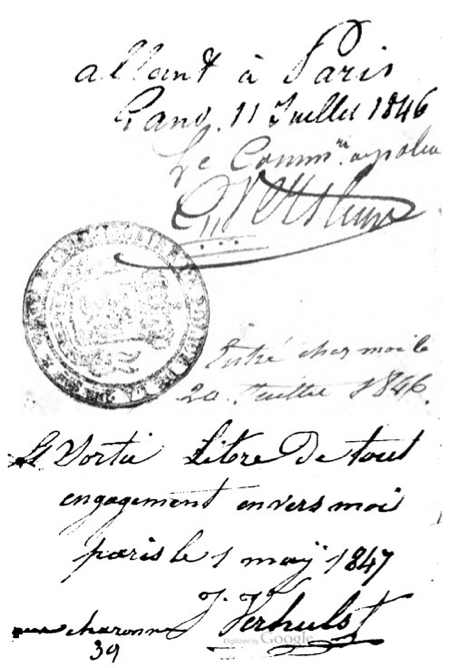 allant à Paris
Gand, 11 Juillet 1846
Le Commre. a police
Entré chez moi le
20 Juillet 1846.
Et Sortie Libre De tout
engagement envers moi
paris le 1 may 1847
J. Verhulst
rue charonne
39
Digitized by Google